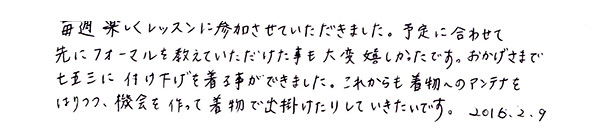 毎週楽しくレッスンに参加させていただきました。予定に合わせて
先にフォーマルを教えていただけた事も大変嬉しかったです。おかげさまで
七五三に付け下げを着る事ができました。これからも着物へのアンテナを
はりつつ、機会を作って着物で出掛けたりしていきたいです。 2016.2.9